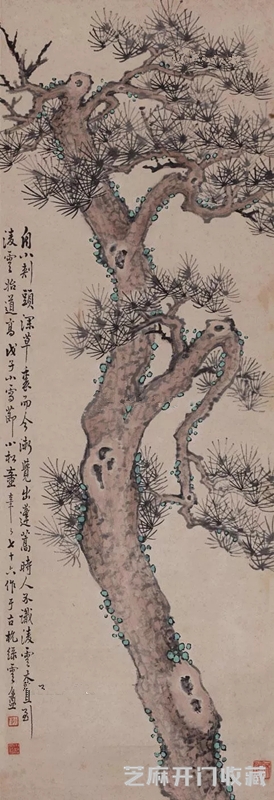 自小刺頭深草裏而今漸覺出蓬蒿時人不識凌雲木直到
凌雲始道高戊子小雪節小松七十六作于古杭綠雲盦
芝麻开门收藏